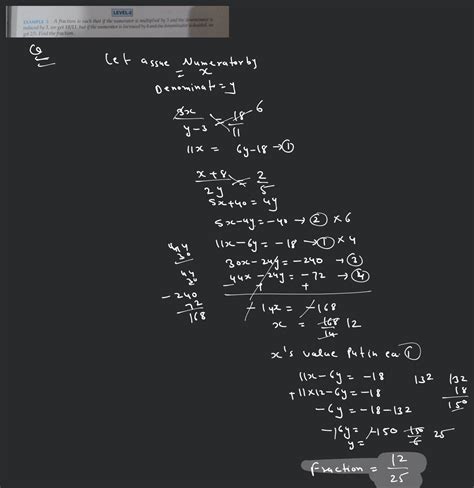 LEVEL-1
EXAMPLE 6 A fraction is such that if the numerator is multiplied by 3 and the denominator is
reduced by 3, we get 18/11, but if the numerator is increased by 8 and the denominator is doubled, we
get 2/5. Find the fraction.
Let assue Numerator by
= x
Denominat = y
3x/y-3 = 18/11 6
11x = 6y-18 → ①
x+8/2y = 2/5
5x+40 = 4y
5x-4y = -40 → ② × 6
11x-6y = -18 → ① × 4
30x-24y = -240 → ③
44x-24y = -72 → ④
- + +
-14x = -168
x = 168/14 12
-240
72
168
x's value put in eq ①
11x-6y = -18
+11×12-6y = -18
-6y = -18-132
-16y = -150 150/6 25
y =
132
132
18
150
fraction = 12/25